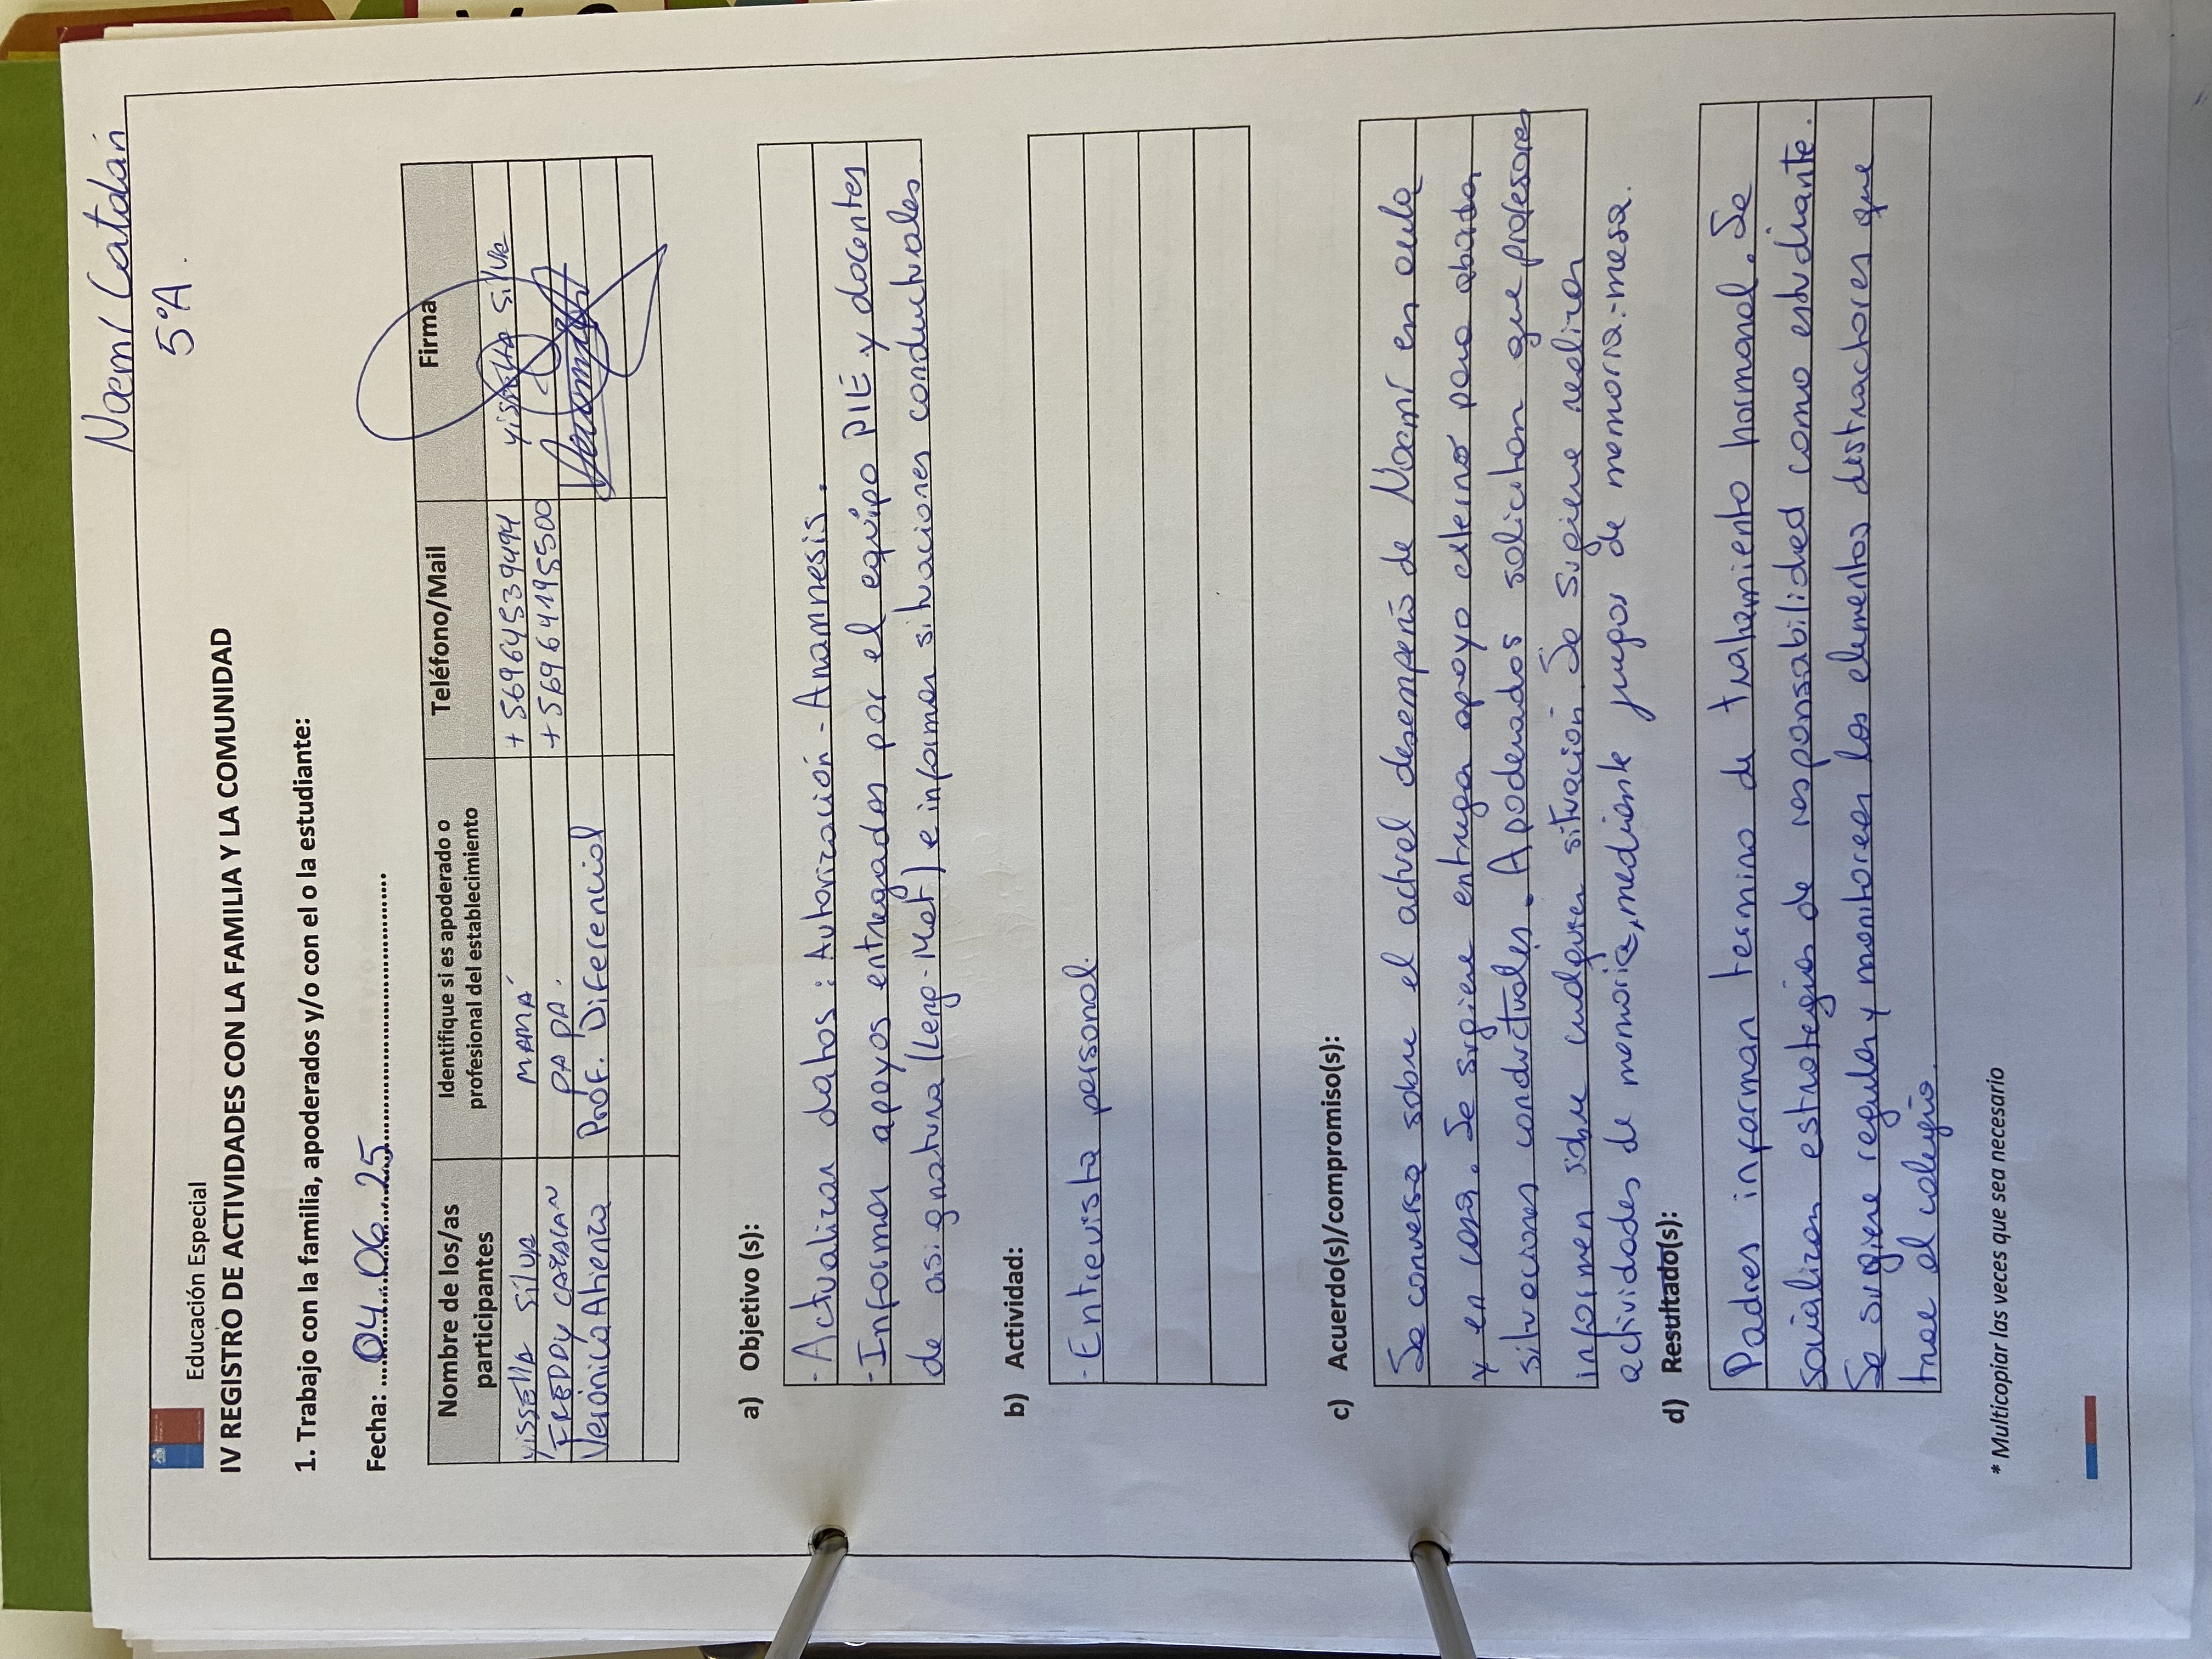 Noemí Catalán
5°A.
Educación Especial
IV REGISTRO DE ACTIVIDADES CON LA FAMILIA Y LA COMUNIDAD
1. Trabajo con la familia, apoderados y/o con el o la estudiante:
Fecha: 04.06.25
Nombre de los/as participantes Identifique si es apoderado o profesional del establecimiento Teléfono/Mail Firma
Yissella Silva MAMÁ +56964539494 Yissella Silva
FREDDY CATALAN PAPA. +56964195500
Verónica Atienza Prof. Diferencial
a) Objetivo (s):
- Actualizar datos: Autorización - Anamnesis.
- Informar apoyos entregados por el equipo PIE y docentes
de asignatura (Leng-Mat) e informar situaciones conductuales
b) Actividad:
- Entrevista personal.
c) Acuerdo(s)/compromiso(s):
Se conversa sobre el actual desempeño de Noemí en aula
y en casa. Se sugiere entregar apoyo externo para abordar
situaciones conductuales. Apoderados solicitan que profesores
informen sobre cualquier situación. Se sugiere realizar
actividades de memoria, mediante juegos de memoria-mesa.
d) Resultado(s):
Padres informan termino de tratamiento hormonal. Se
socializan estrategias de responsabilidad como estudiante.
Se sugiere regular y monitorear los elementos distractores que
trae al colegio.
* Multicopiar las veces que sea necesario